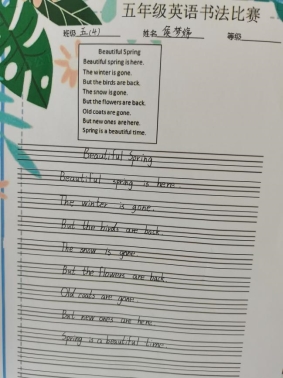 五年级英语书法比赛
班级 五(4) 姓名 梦婷 等级
Beautiful Spring
Beautiful spring is here.
The winter is gone.
But the birds are back.
The snow is gone.
But the flowers are back.
Old coats are gone.
But new ones are here.
Spring is a beautiful time.
Beautiful Spring
Beautiful spring is here.
The winter is gone.
But the birds are back.
The snow is gone.
But the flowers are back.
Old coats are gone.
But new ones are here.
Spring is a beautiful time.